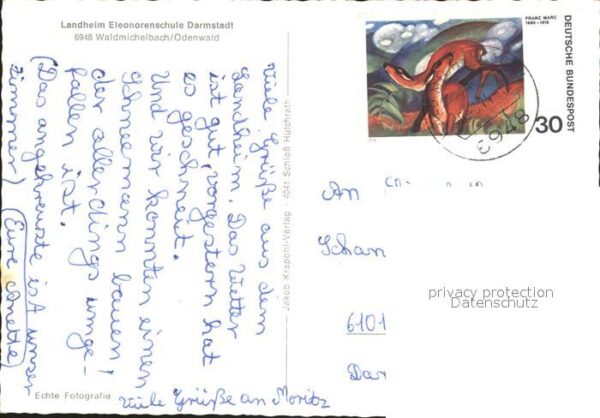 Landheim Eleonorenschule Darmstadt
6948 Waldmichelbach/Odenwald
Viele Grüße aus dem
Landheim. Das Wetter
ist gut, vorgestern hat
es geschneit.
Und wir konnten einen
Schneemann bauen!
der allerdings umge-
fallen ist.
(Das angekreuzte ist unser
Zimmer) (Eure Anette)
Viele Grüße an Moritz
Echte Fotografie
Jakob Krapohl-Verlag · 4041 Schloß Hülchrath
FRANZ MARC
1880-1916
DEUTSCHE BUNDESPOST
30
6948
An
Schan
6101
Dar
privacy protection
Datenschutz